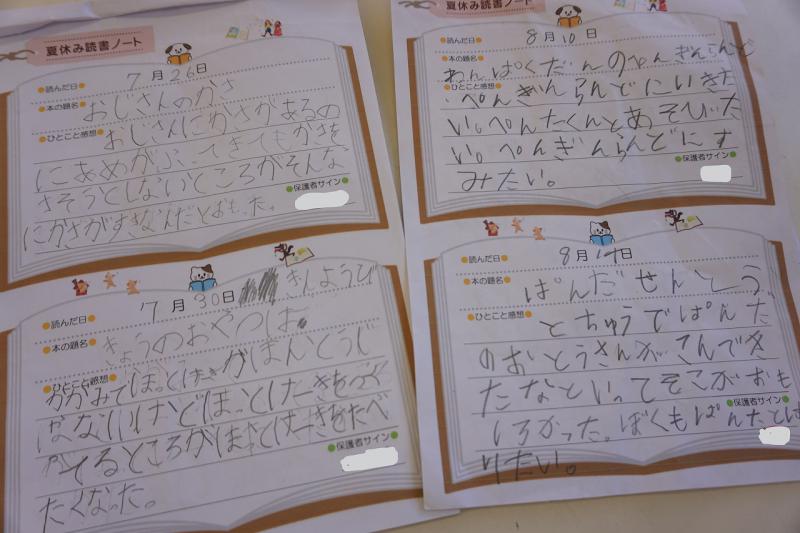 夏休み読書ノート
読んだ日
7月26日
本の題名
おじさんのかさ
ひとこと感想
おじさんにかさがあるの
にあめがふってきてもかさを
さそうとしないところがそんな
にかさがすきなんだとおもった。
保護者サイン
読んだ日
7月30日
きんようび
本の題名
きょうのおやつは
ひとこと感想
かがみでほっとけーきがほんとうじ
ゃないけどほっとけーきを
てるところがほっとけーきをたべ
たくなった。
保護者サイン
夏休み読書ノート
読んだ日
8月10日
本の題名
わんぱくだんのぺんぎんらんど
ひとこと感想
ぺんぎんらんどにいきた
い。ぺんたくんとあそびた
い。ぺんぎんらんどにす
みたい。
保護者サイン
読んだ日
8月14日
本の題名
ぱんだせんとう
ひとこと感想
とちゅうでぱんだ
のおとうさんがこんでき
たなといってそこがおも
しろかった。ぼくもぱんだとは
いりたい。
保護者サイン